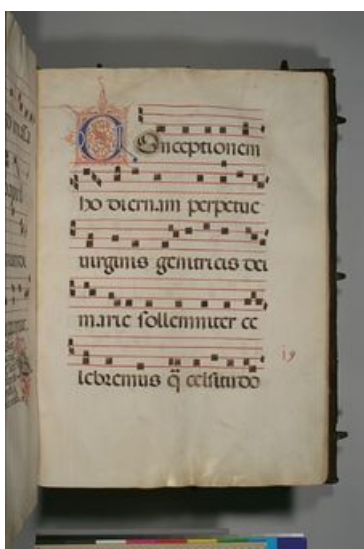 Conceptionem
ho diernam perpetue
uirginis genitricis dei
marie sollemniter ce
lebremus q̄ celsitudo
19